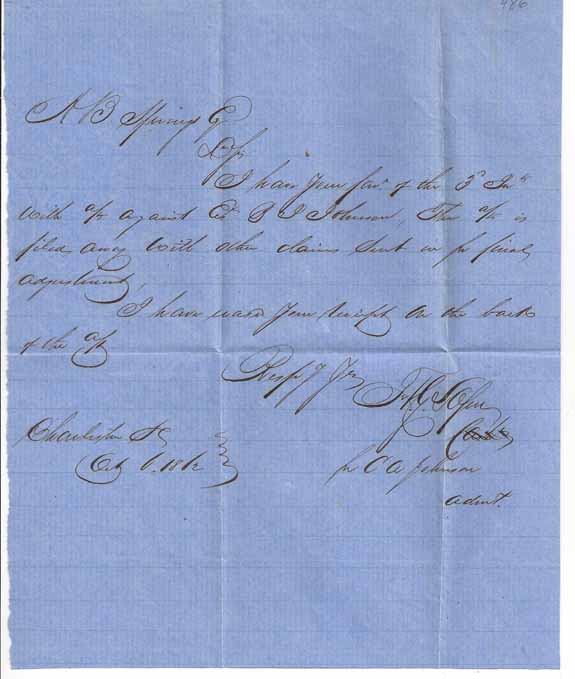 486
A B Springs Esq
Dr Sir
I have your favr of the 3d Inst
with a/c against Est B J Johnson, The a/c is
filed away with other claims sent in for final
adjustment,
I have used your receipt on the back
of the a/c
Respy Yrs
Charleston SC
Oct 6. 1862
for C A Johnson
admt.